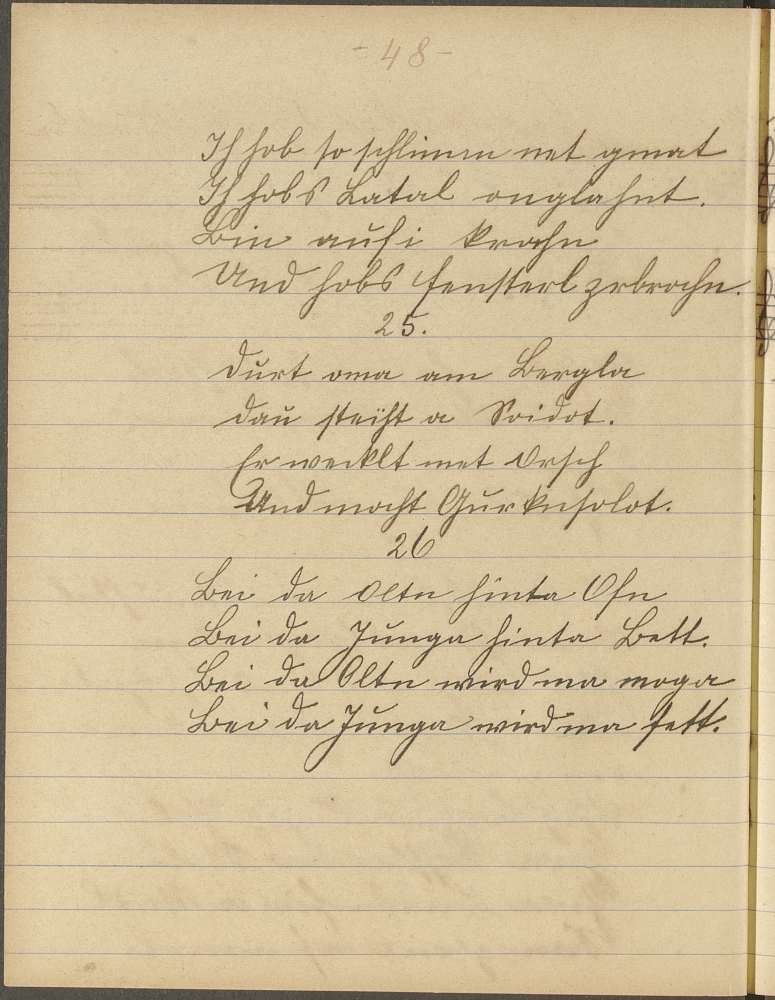 - 48 -
Ih hob so schlimm net gmat
Ih hobs Latal onglahnt.
Bin aufi krahn
Und hobs fensterl zrbrochn.
25.
Durt oma am Bergla
Dau steiht a Soidot.
Er wecklt met Orsch
Und mocht Gurknsolot.
26
Bei da Oltn hinta Ofn
Bei da Junga hinta Bett.
Bei da Oltn wird ma moga
Bei da Junga wird ma fett.